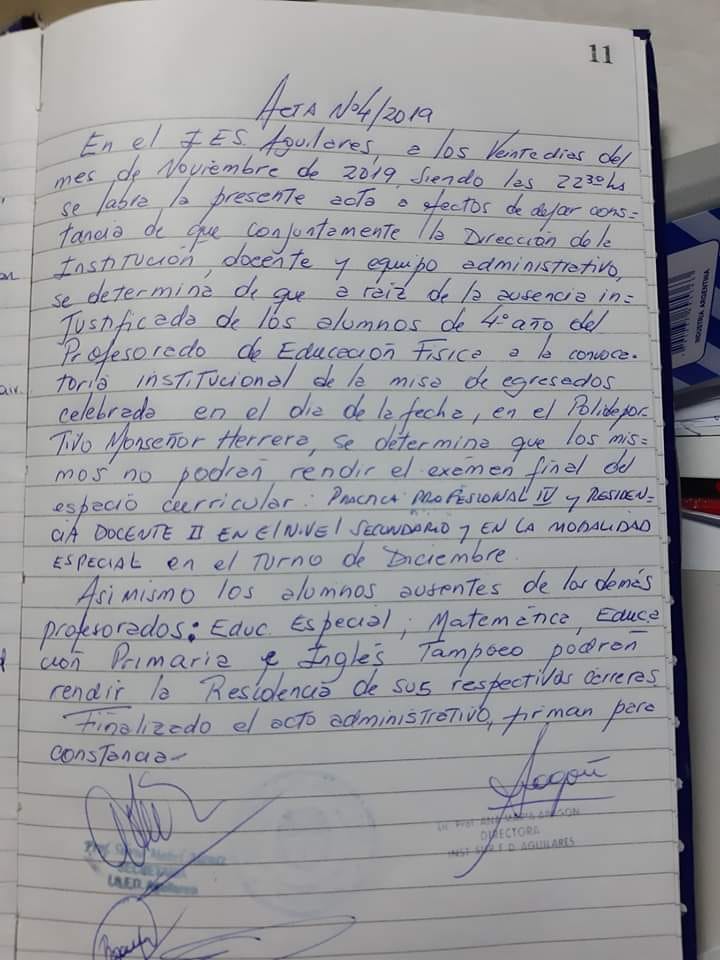 11
ACTA Nº4/2019
En el I.E.S. Aguilares, a los Veinte dias del
mes de Noviembre de 2019, siendo las 22³⁰hs
se labra la presente acta a efectos de dejar cons=
tancia de que conjuntamente la Dirección de la
Institución, docente y equipo administrativo,
se determina de que a raiz de la ausencia in=
Justificada de los alumnos de 4º año del
Profesorado de Educación Física a la convoca-
toria institucional de la misa de egresados
celebrada en el dia de la fecha, en el Polidepor
Tivo Monseñor Herrera, se determina que los mis=
mos no podrán rendir el exámen final del
espacio curricular: PRACTICA PROFESIONAL IV y RESIDEN-
CIA DOCENTE II EN El NIVEl SECUNDARIO y EN LA MODALIDAD
ESPECIAL en el Turno de Diciembre.
Asimismo los alumnos ausentes de los demás
profesorados: Educ. Especial; Matemática, Educa
ción Primaria e Inglés Tampoco podrán
rendir la Residencia de sus respectivas carreras
Finalizado el acto administrativo, firman para
constancia-
Aragón
Lic. Prof. ANA MARIA ARAGON
DIRECTORA
INST. SUP. E. D. AGUILARES
Prof.
SECRETARIA
I.N.E.D. Aguilares
INDUSTRIA ARGENTINA